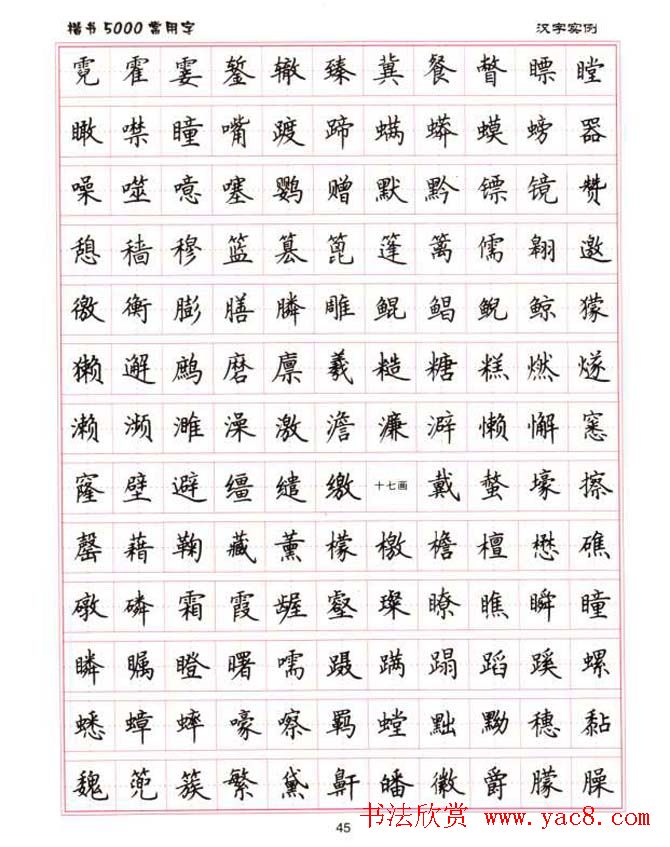 楷书5000常用字 汉字实例
霓霍霎錾辙臻冀餐瞥瞟瞠
瞰噤瞳嘴踱蹄螨蟒蟆螃器
噪噬噫塞鹦赠默黔镖镜赞
憩穑穆篮篡篦篷篱儒翱邀
徼衡膨膳膦雕鲲鲳鲵鲸獴
獭邂鹧磨廪羲糙糖糕燃燧
濑濒濉澡激澹濂澼懒懈窸
窿壁避缰缱缴十七画戴螫壕擦
罄藉鞠藏薰檬檄檐檀懋礁
礅磷霜霞龌壑璨瞭瞧瞬瞳
瞵瞩瞪曙嚅蹑蹒蹋蹈蹊螺
蟋蟑蟀嚎察羁螳黜黝穗黏
魏篼簇繁黛鼾皤徽爵朦臊
书法欣赏 www.yac8.com
45